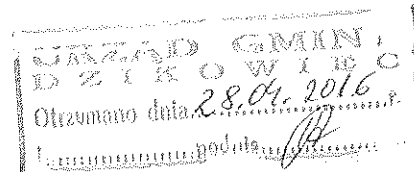 URZĄD GMINY
DZIKOWIEC
Otrzymano dnia 28.04.2016 r.
L. podpis